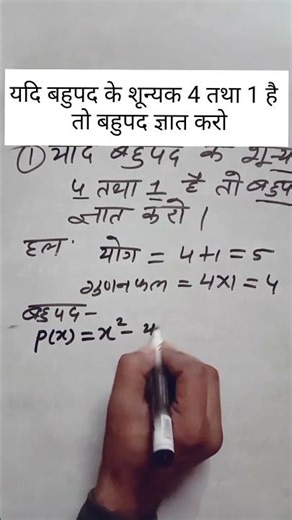 यदि बहुपद के शून्यक 4 तथा 1 है
तो बहुपद ज्ञात करो
① यदि बहुपद के शून्य
4 तथा 1 है तो बहुप
ज्ञात करो।
हल: योग = 4+1=5
गुणनफल = 4×1=4
बहुपद-
p(x)=x²-